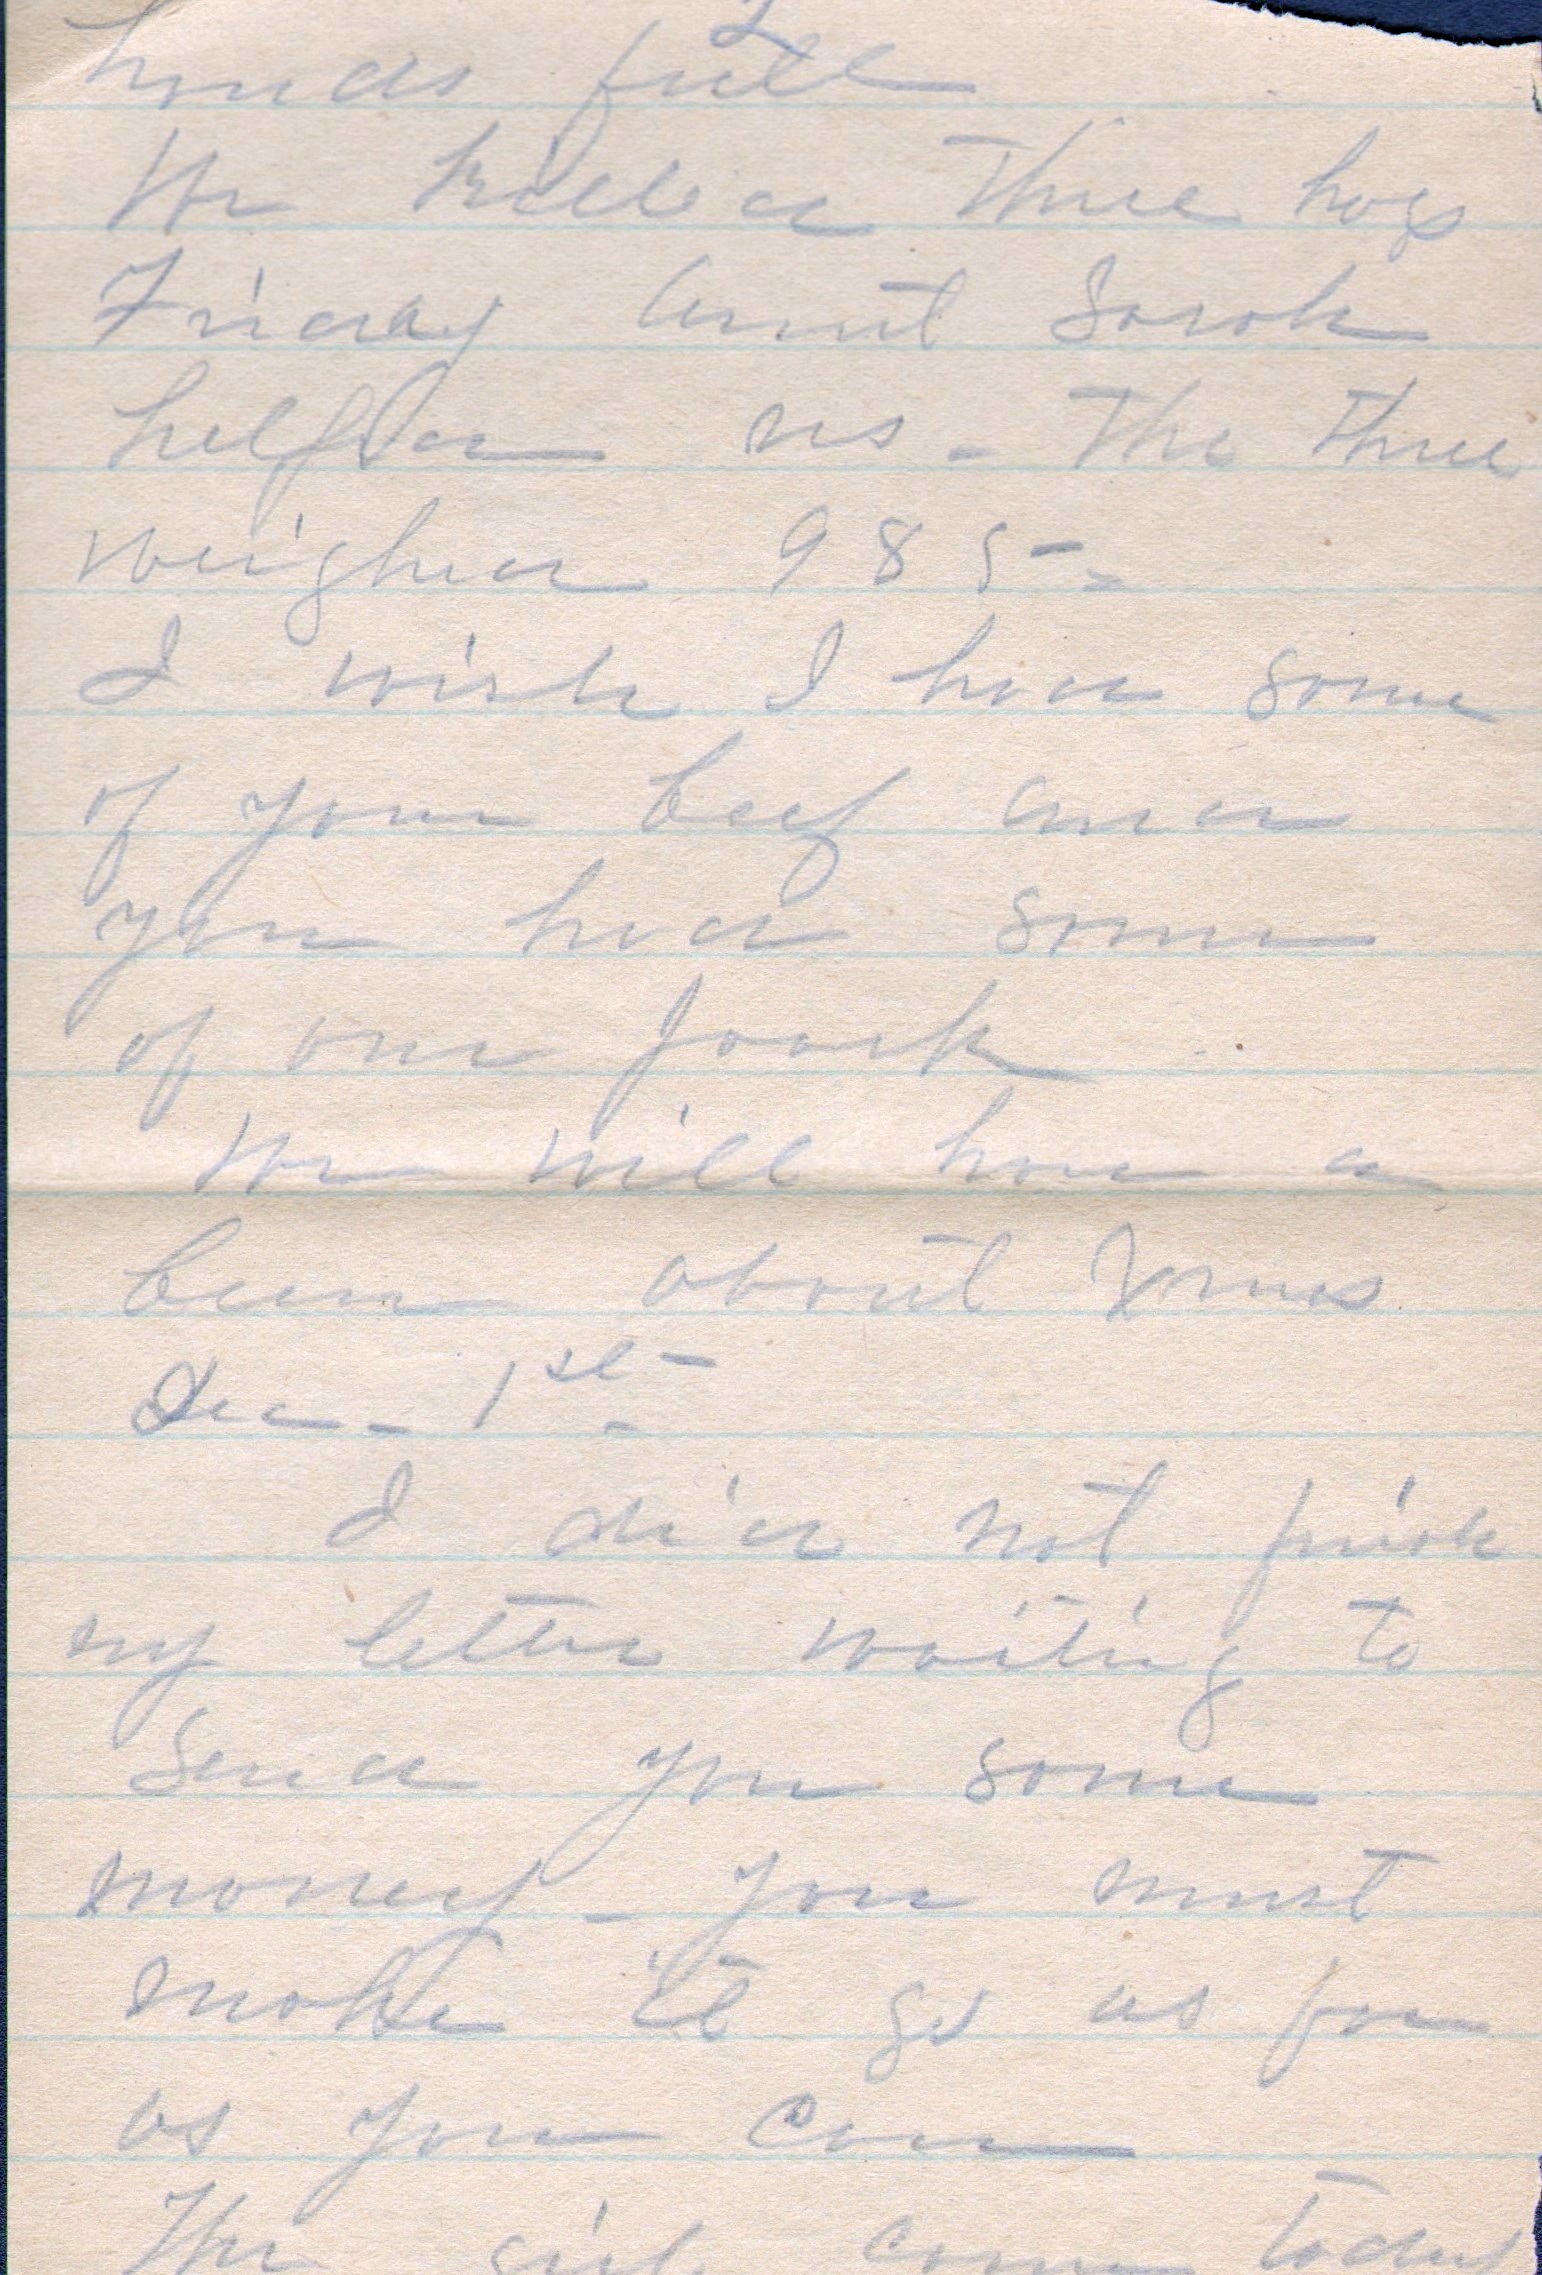 2
hands full
We killed three hogs
Friday Aunt Sarah
helped us - The three
weighed 985-
I wish I had some
of your beef and
you had some
of our pork
We will have a
beef about Xmas
Dec - 1st -
I did not finish
my letter waiting to
send you some
money - you must
make it go as far
as you can
The girls came today